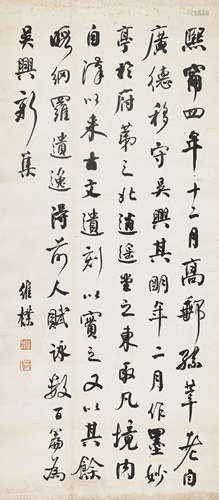 熙甯四年十二月高郵孫莘老自
廣德移守吳興其明年二月作墨妙
亭於府第之北逍遙堂之東取凡境內
自漢以來古文遺刻以實之又以其餘
暇網羅遺逸得前人賦詠數百篇為
吳興新集
維樸